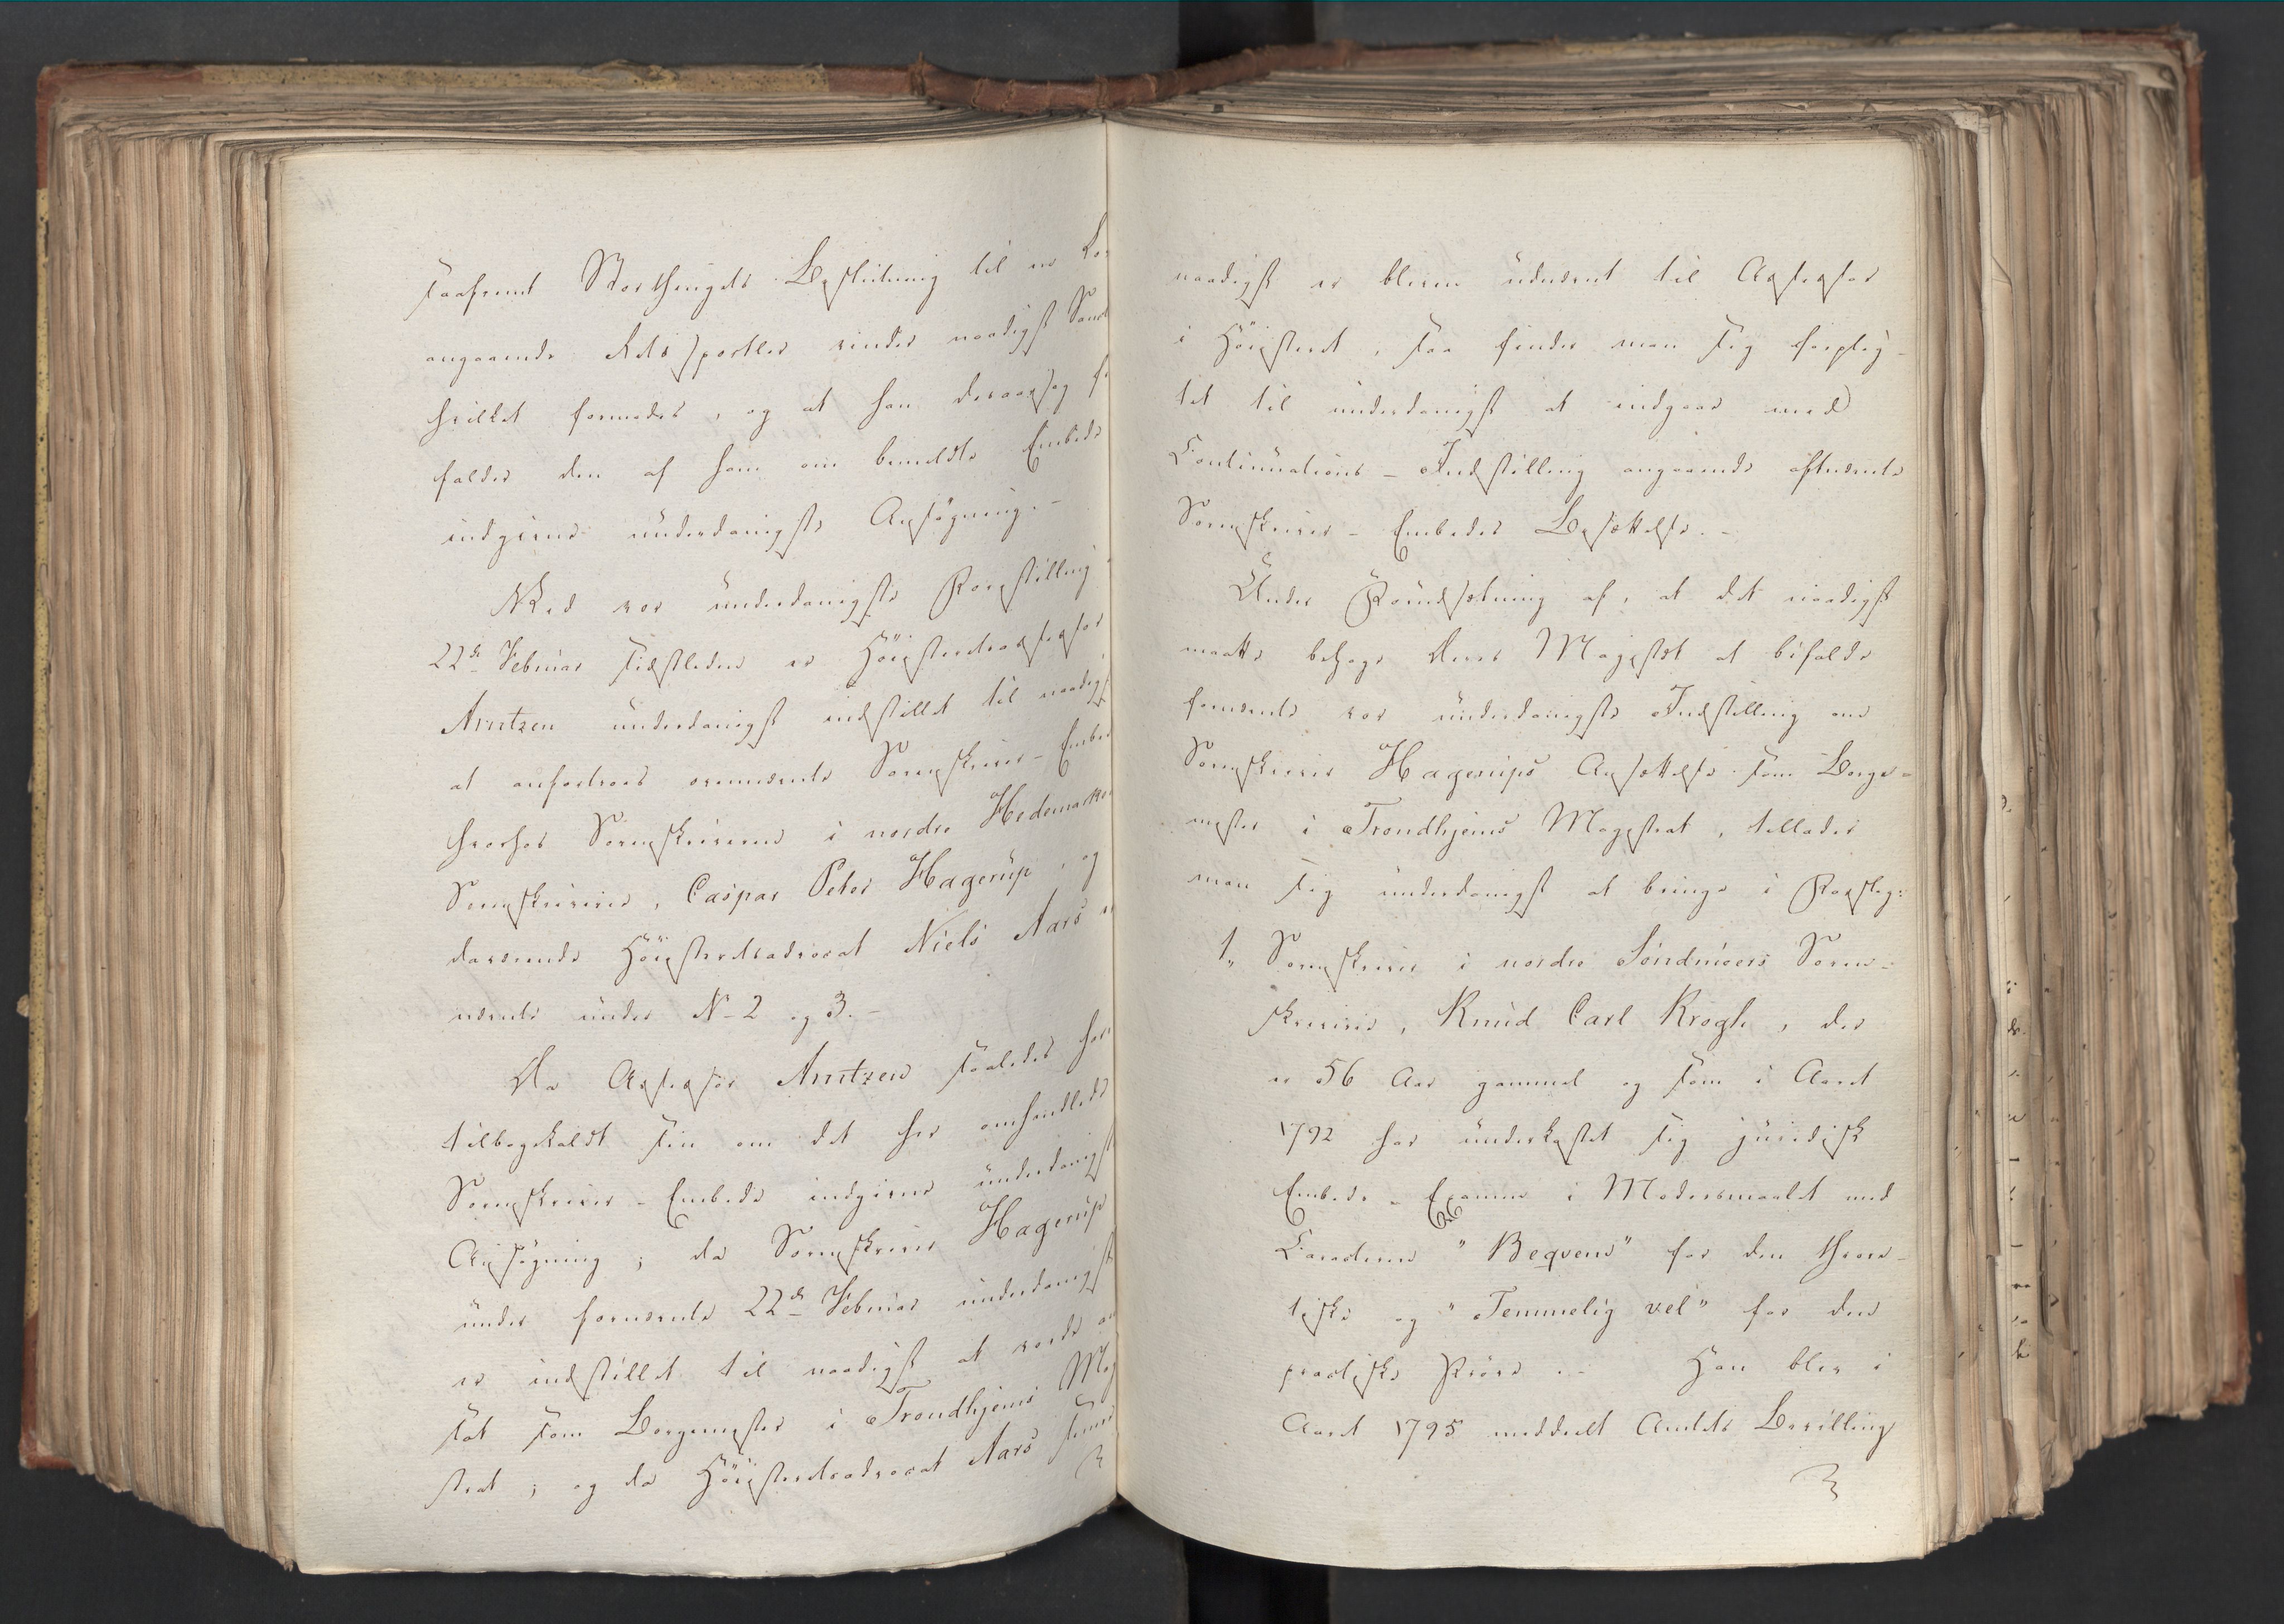 saafremt Storthingets Beslutning til en Lov
angaaende Retssportler vinder naadigst Sanc
hvilket formodes, og at han deraarsag fra
falder den af ham om bemeldte Embede
indgivne underdanigste Ansøgning.-
Ved vor underdanigste Forestilling
22de Februar sidstleden er Høiesteretsassessor
Arntzen underdanigst indstillet til naadigst
at anfortroes ovennævnte Sorenskriver-Embe
hvorhos Sorenskriveren i nordre Hedemarkens
Sorenskriverie, Caspar Peter Hagerup, og
daværende Høiesteretsadvocat Niels Aars er
nævnte under No 2 og 3.-
Da Assessor Arntzen saaledes har
tilbagekaldt sin om det her omhandlede
Sorenskriver-Embede indgivne underdanigste
Ansøgning; da Sorenskriver Hagerup
under fornævnte 22de Februar underdanigst
er indstillet til naadigst at vorde an
sat som Borgemester i Trondhjems Mag
strat; og da Høiesteretsadvocat Aars senere
naadigst er bleven udnævnt til Assessor
i Høiesteret, saa finder man sig forplig-
tet til underdanigst at indgaae med
Continuations-Indstilling angaaende oftnævnte
Sorenskriver-Embedes Besættelse.-
Under Forudsætning af, at det naadigst
maatte behage Deres Majestæt at bifalde
fornævnte vor underdanigste Indstilling om
Sorenskriver Hagerups Ansættelse som Borge-
mester i Trondhjems Magistrat, tillader
man sig underdanigst at bringe i Forslag:
1, Sorenskriver i nordre Søndmøers Soren-
skriverie, Knud Carl Krogh, der
er 56 Aar gammel og som i Aaret
1792 har underkastet sig juridisk
Embeds-Examen i Modersmaalet med
Caracteren "Beqvem" for den theore-
tiske og "Temmelig vel" for den
practiske Prøve.- Han blev i
Aaret 1795 meddeelt Amtets Bevilling